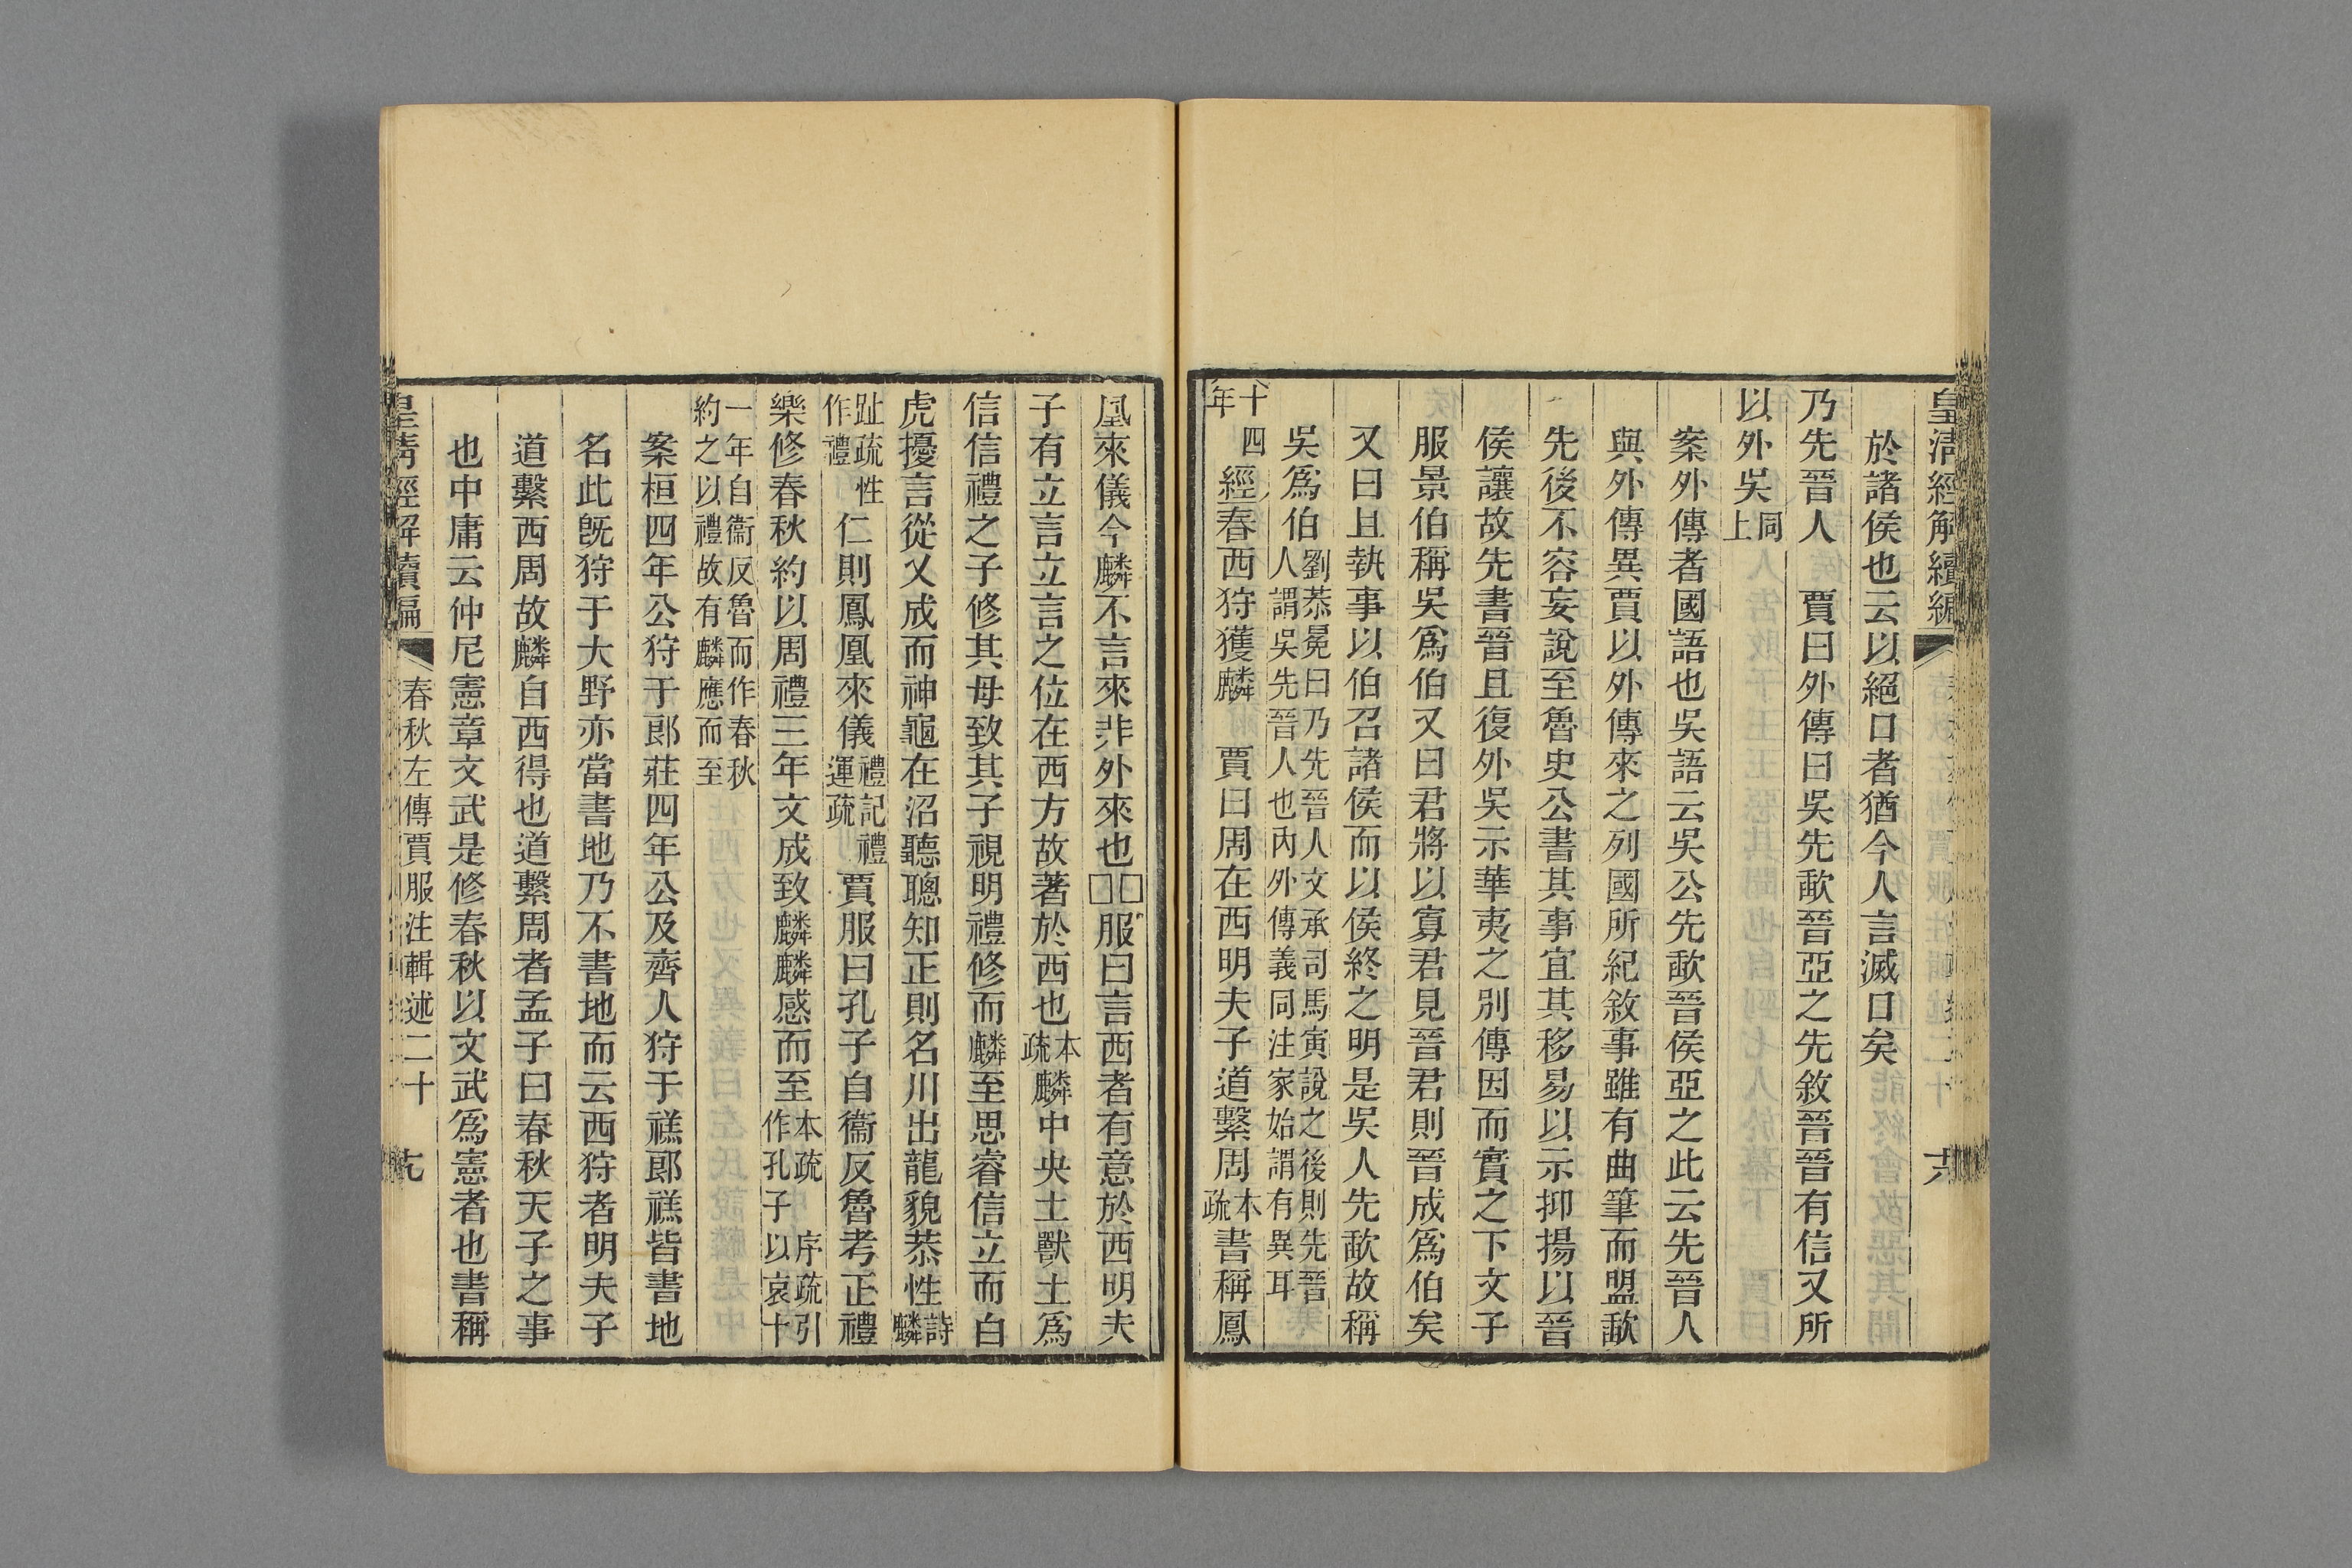 皇清經解續編
於諸侯也云以絕口者猶今人言滅口矣
乃先晉人　賈曰外傳曰吳先歃晉亞之先敘晉晉有信又所
以外吳同上
案外傳者國語也吳語云吳公先歃晉侯亞之此云先晉人
與外傳異賈以外傳來之列國所紀敘事雖有曲筆而盟歃
先後不容妄說至魯史公書其事宜其移易以示抑揚以晉
侯讓故先書晉且復外吳示華夷之別傳因而實之下文子
服景伯稱吳爲伯又曰君將以寡君見晉君則晉成爲伯矣
又曰且執事以伯召諸侯而以侯終之明是吳人先歃故稱
吳爲伯劉恭冕曰乃先晉人文承司馬寅說之後則先晉
人謂吳先晉人也內外傳義同注家始謂有異耳
十四年經春西狩獲麟　賈曰周在西明夫子道繫周本疏書稱鳳
凰來儀今麟不言來非外來也□□服曰言西者有意於西明夫
子有立言立言之位在西方故著於西也本疏麟中央土獸土爲
信信禮之子修其母致其子視明禮修而麟至思睿信立而白
虎擾言從乂成而神龜在沼聽聰知正則名川出龍貌恭性詩麟
趾疏性作禮仁則鳳凰來儀禮記禮運疏賈服曰孔子自衞反魯考正禮
樂修春秋約以周禮三年文成致麟麟感而至本疏　序疏引作孔子以哀十
一年自衞反魯而作春秋約之以禮故有麟應而至
案桓四年公狩于郎莊四年公及齊人狩于禚郎禚皆書地
名此旣狩于大野亦當書地乃不書地而云西狩者明夫子
道繫西周故麟自西得也道繫周者孟子曰春秋天子之事
也中庸云仲尼憲章文武是修春秋以文武爲憲者也書稱
皇清經解續編　春秋左傳賈服注輯述二十